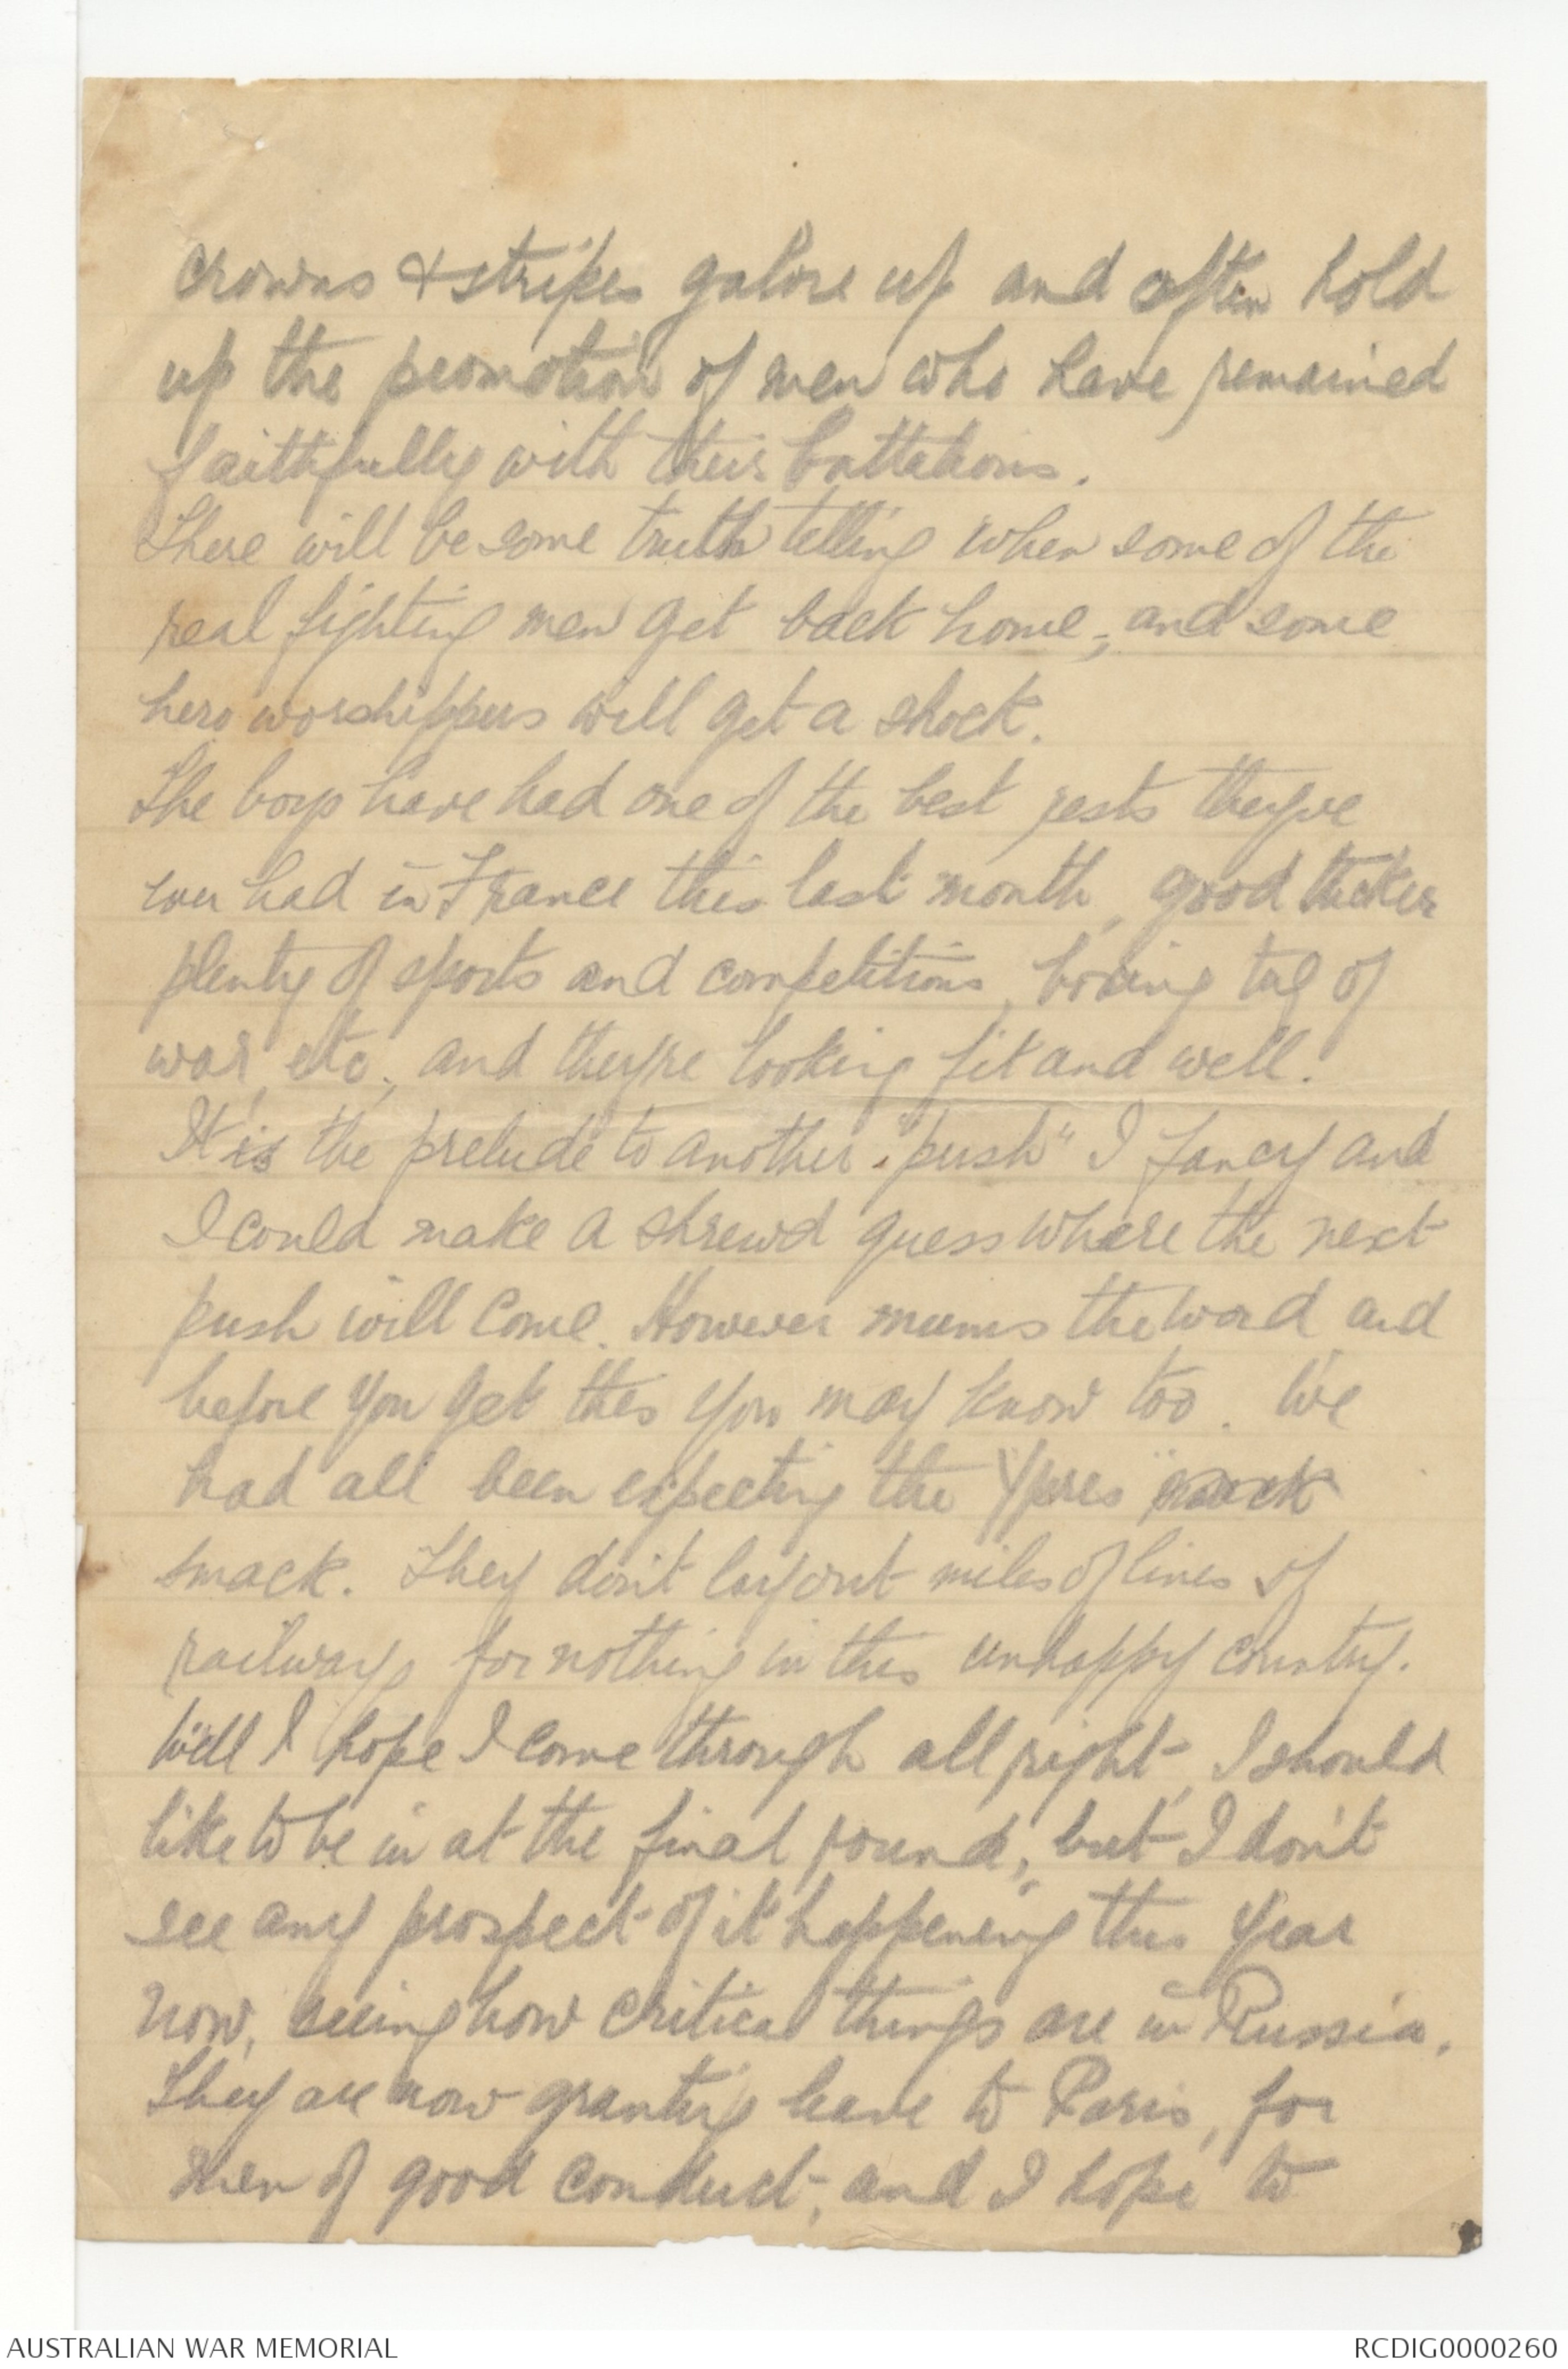 crowns & stripes galore up and often hold
up the promotion of men who have remained
faithfully with their battalions.
There will be some truth telling when some of the
real fighting men get back home, and some
hero worshippers will get a shock.
The boys have had one of the best rests they've
ever had in France this last month, good tucker
plenty of sports and competitions, boxing tug of
war, etc, and they're looking fit and well.
It is the prelude to another "push" I fancy and
I could make a shrewd guess where the next
push will come. However mums the word and
before you get this you may know too. We
had all been expecting the Ypres
smack. They don't lay out miles of lines of
railways for nothing in this unhappy country.
Well I hope I come through all right, I should
like to be in at the final round, but I don't
see any prospect of it happening this year
now, seeing how critical things are in Russia.
They are now granting leave to Paris, for
men of good conduct, and I hope to
AUSTRALIAN WAR MEMORIAL
RCDIG0000260